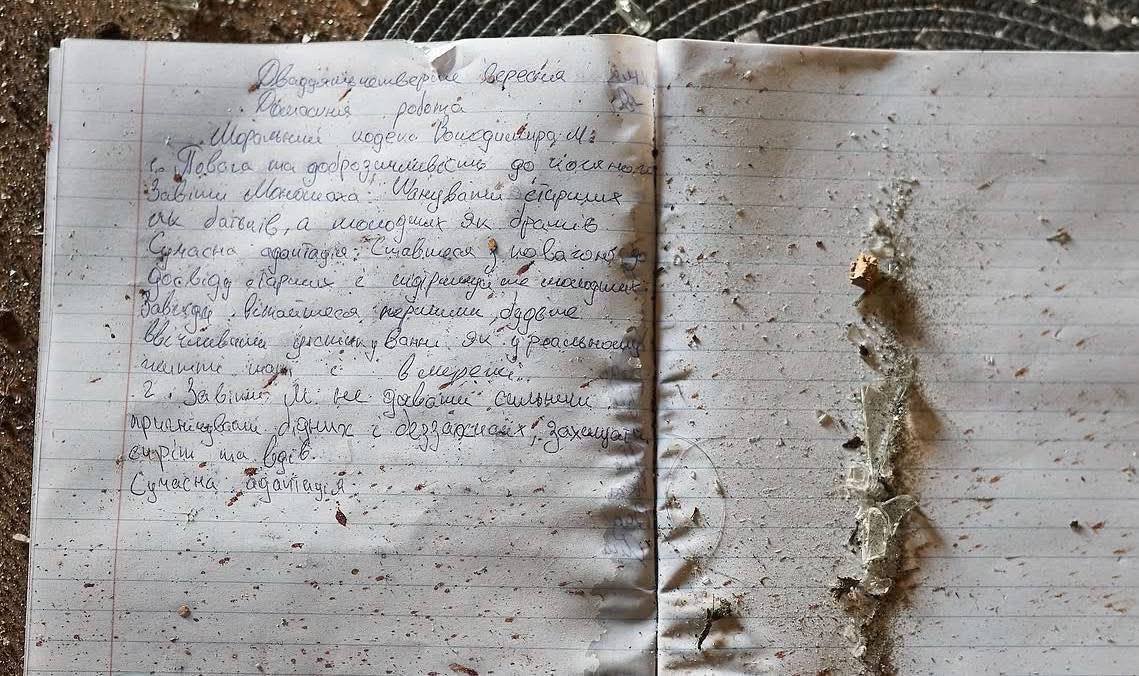 Двадцять четверте вересня
Домашня робота
Моральний кодекс Володимира М:
1. Повага та доброзичливість до кожного
Завіти Мономаха: Шанувати старших
як батьків, а молодших як братів
Сучасна адаптація: Ставтеся з повагою до
досвіду старших і підтримуйте молодших.
Завжди вітайтеся першими, будьте
ввічливими у спілкуванні як у реальному
житті так і в мережі.
2. Завіти М: не давати сильним
пригнічувати бідних і беззахисних, захищати
сиріт та вдів.
Сучасна адаптація: